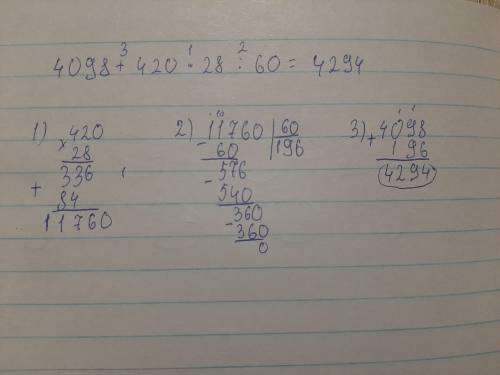 4098 + 420 · 28 : 60 = 4294
3 1 2
1) 420
× 28
336
+ 84
11760
2) 11760 | 60
- 60 196
576
- 540
360
- 360
0
3) 4098
+ 196
4294